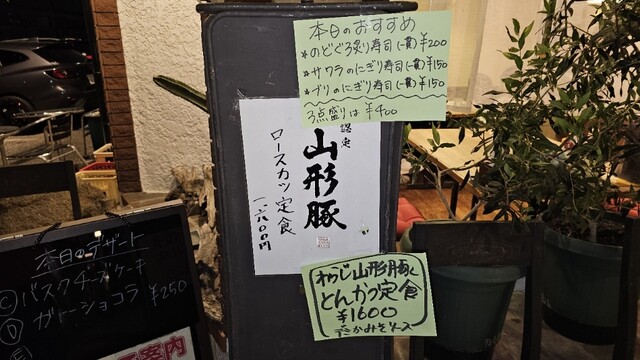 本日のおすすめ
*のどぐろ炙り寿司(一貫)¥200
*サワラのにぎり寿司(一貫)¥150
*ブリのにぎり寿司(一貫)¥150
3点盛りは¥400
認定
山形豚
ロースカツ定食
一、六〇〇円
山形豚
とんかつ定食
¥1600
本日のデザート
Ⓒバスクチーズケーキ
Ⓓガトーショコラ ¥250
Ⓔ
案内